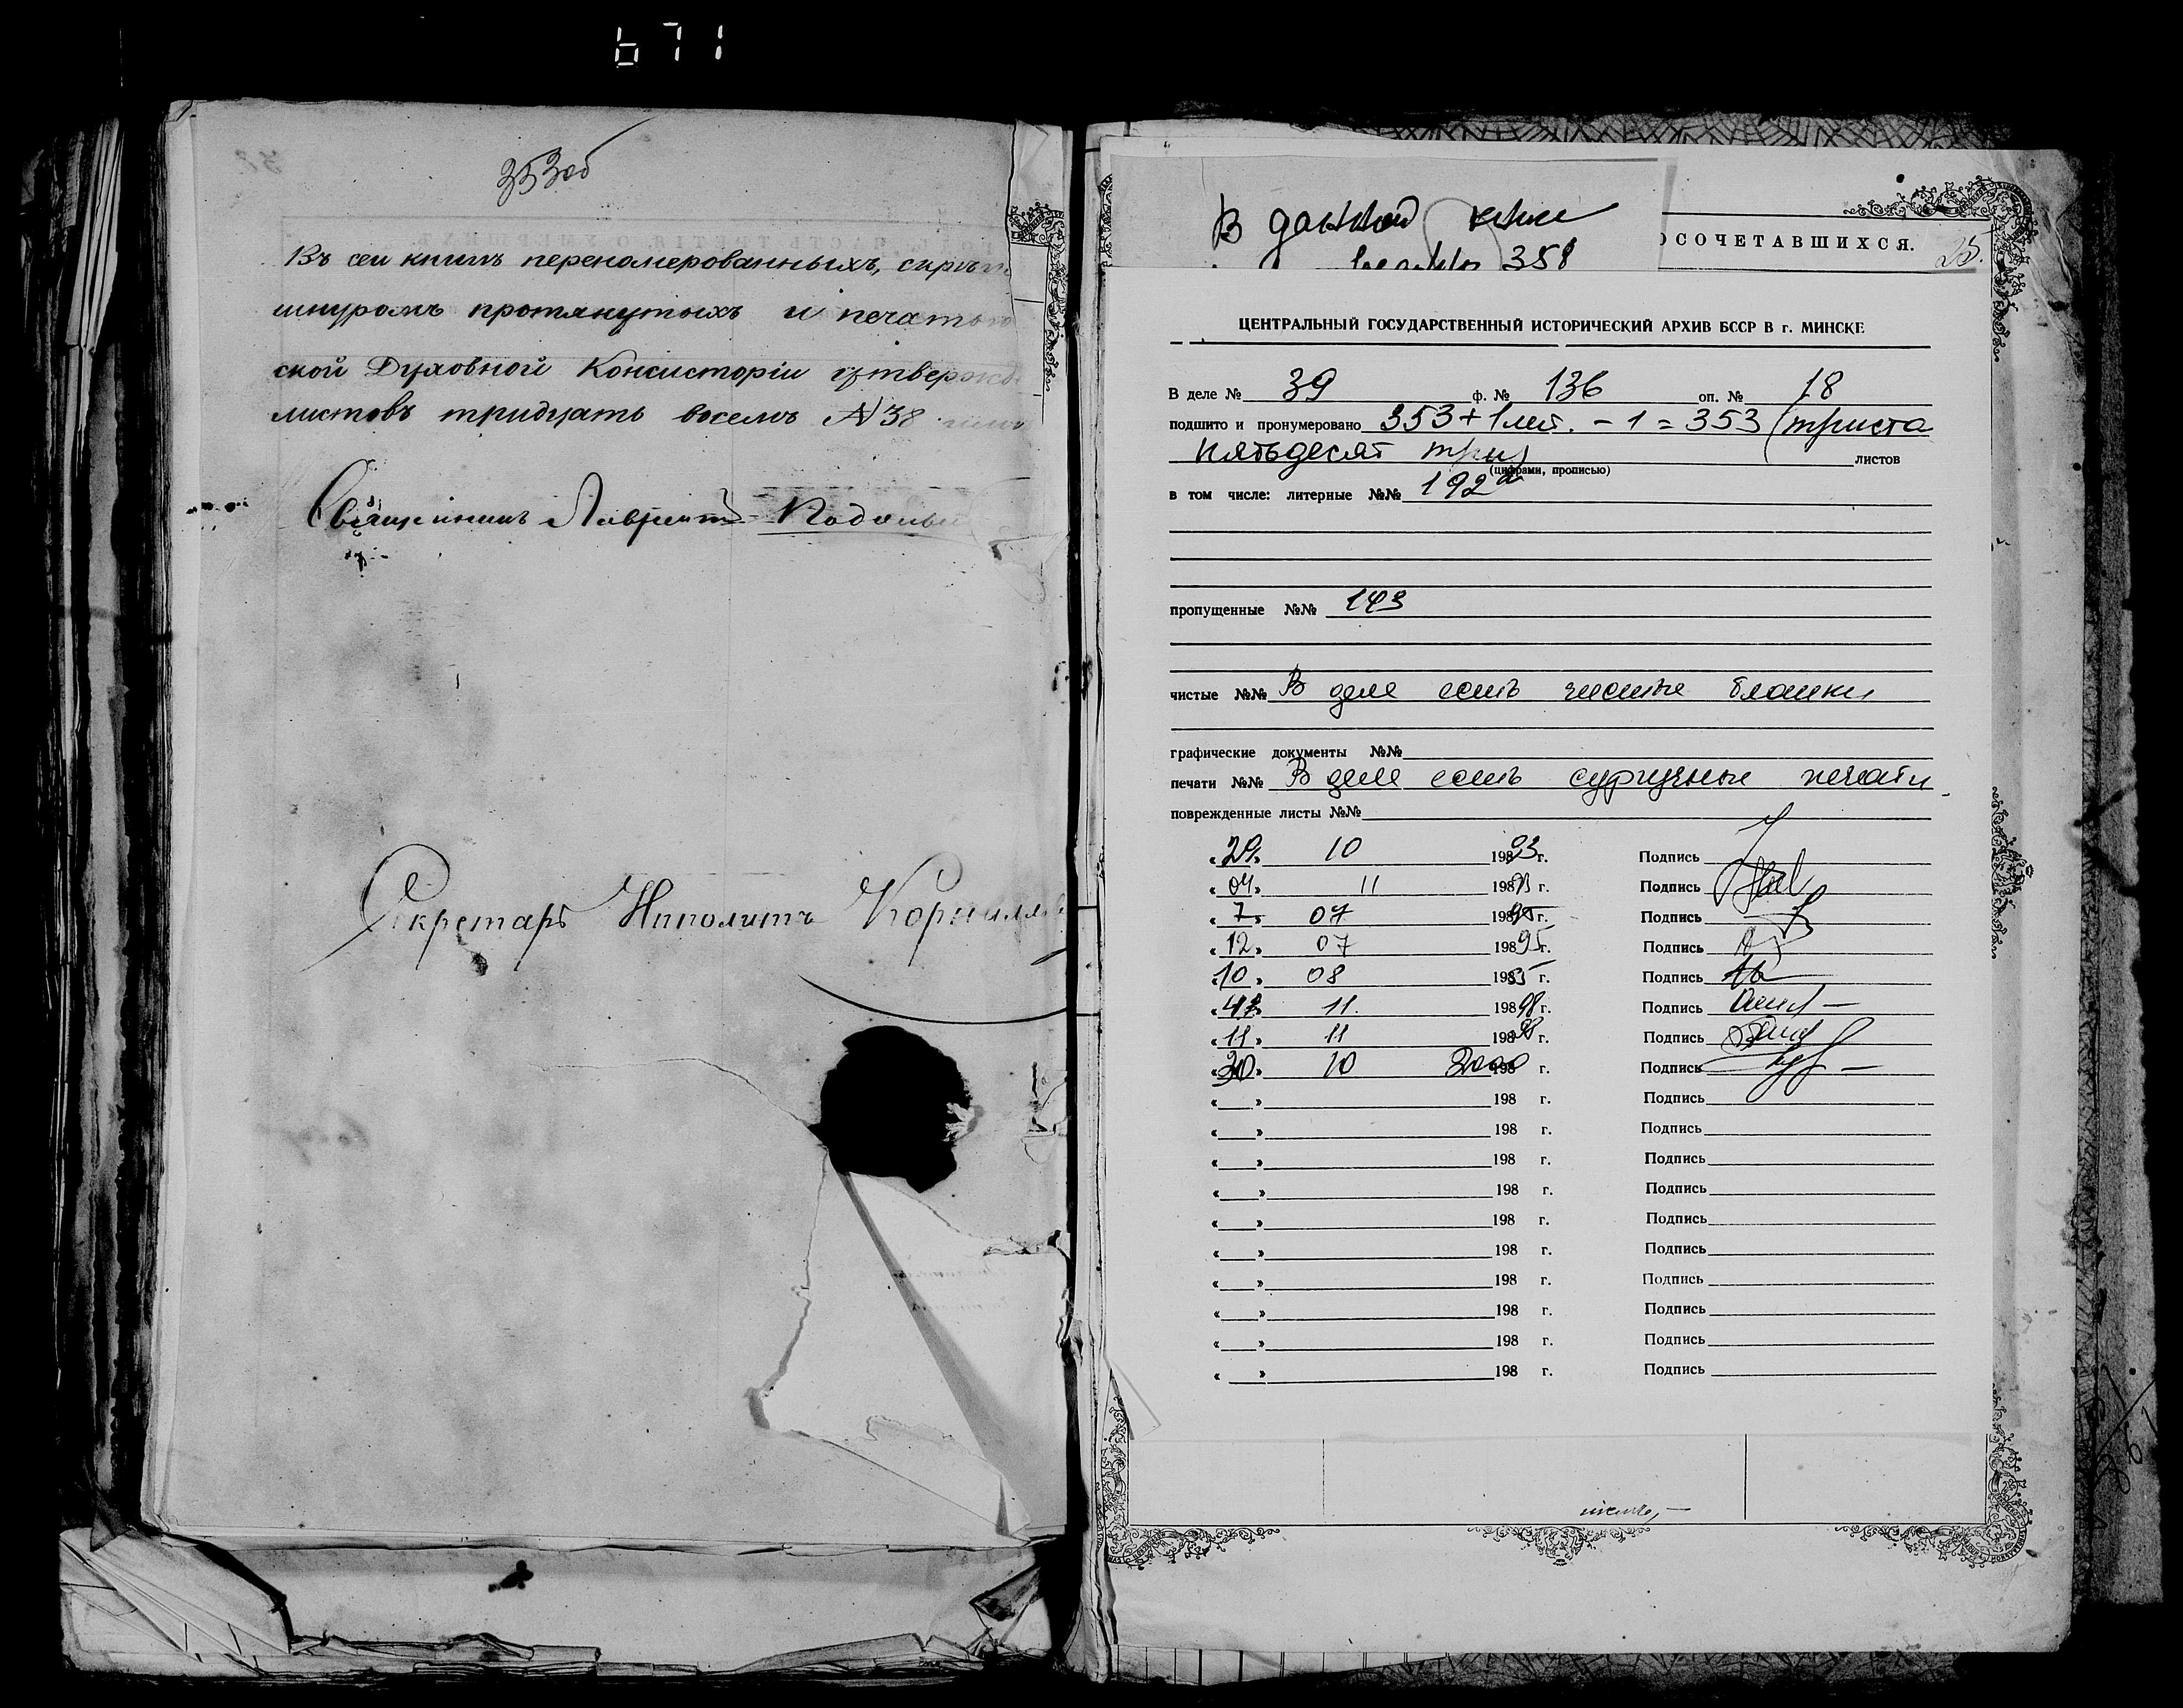 671
353об
Въ сей книгѣ переномерованныхъ, скрѣп
шнуромъ протянутыхъ и печатью
ской Духовной Консисторіи утвержд
листовъ тридцать восемь № 38
Священникъ Лаврентій
Секретарь Ипполитъ
В данной книге
358
ОСОЧЕТАВШИХСЯ.
25.
ЦЕНТРАЛЬНЫЙ ГОСУДАРСТВЕННЫЙ ИСТОРИЧЕСКИЙ АРХИВ БССР В г. МИНСКЕ
В деле № 39 ф. № 136 оп. № 18
подшито и пронумеровано 353+1лит. - 1 = 353 (триста
пятьдесят три) листов
(цифрами, прописью)
в том числе: литерные №№ 192а
пропущенные №№ 143
чистые №№ В деле есть чистые бланки
графические документы №№
печати №№ В деле есть сургучные печати
поврежденные листы №№
«29» 10 19893г. Подпись
«04» 11 198 г. Подпись
«7» 07 19895г. Подпись
«12» 07 19895г. Подпись
«10» 08 198 г. Подпись
« » 11. 19898г. Подпись
«11» 11 19898г. Подпись
«30» 10 2000 198 г. Подпись
« » 198 г. Подпись
« » 198 г. Подпись
« » 198 г. Подпись
« » 198 г. Подпись
« » 198 г. Подпись
« » 198 г. Подпись
« » 198 г. Подпись
« » 198 г. Подпись
« » 198 г. Подпись
« » 198 г. Подпись